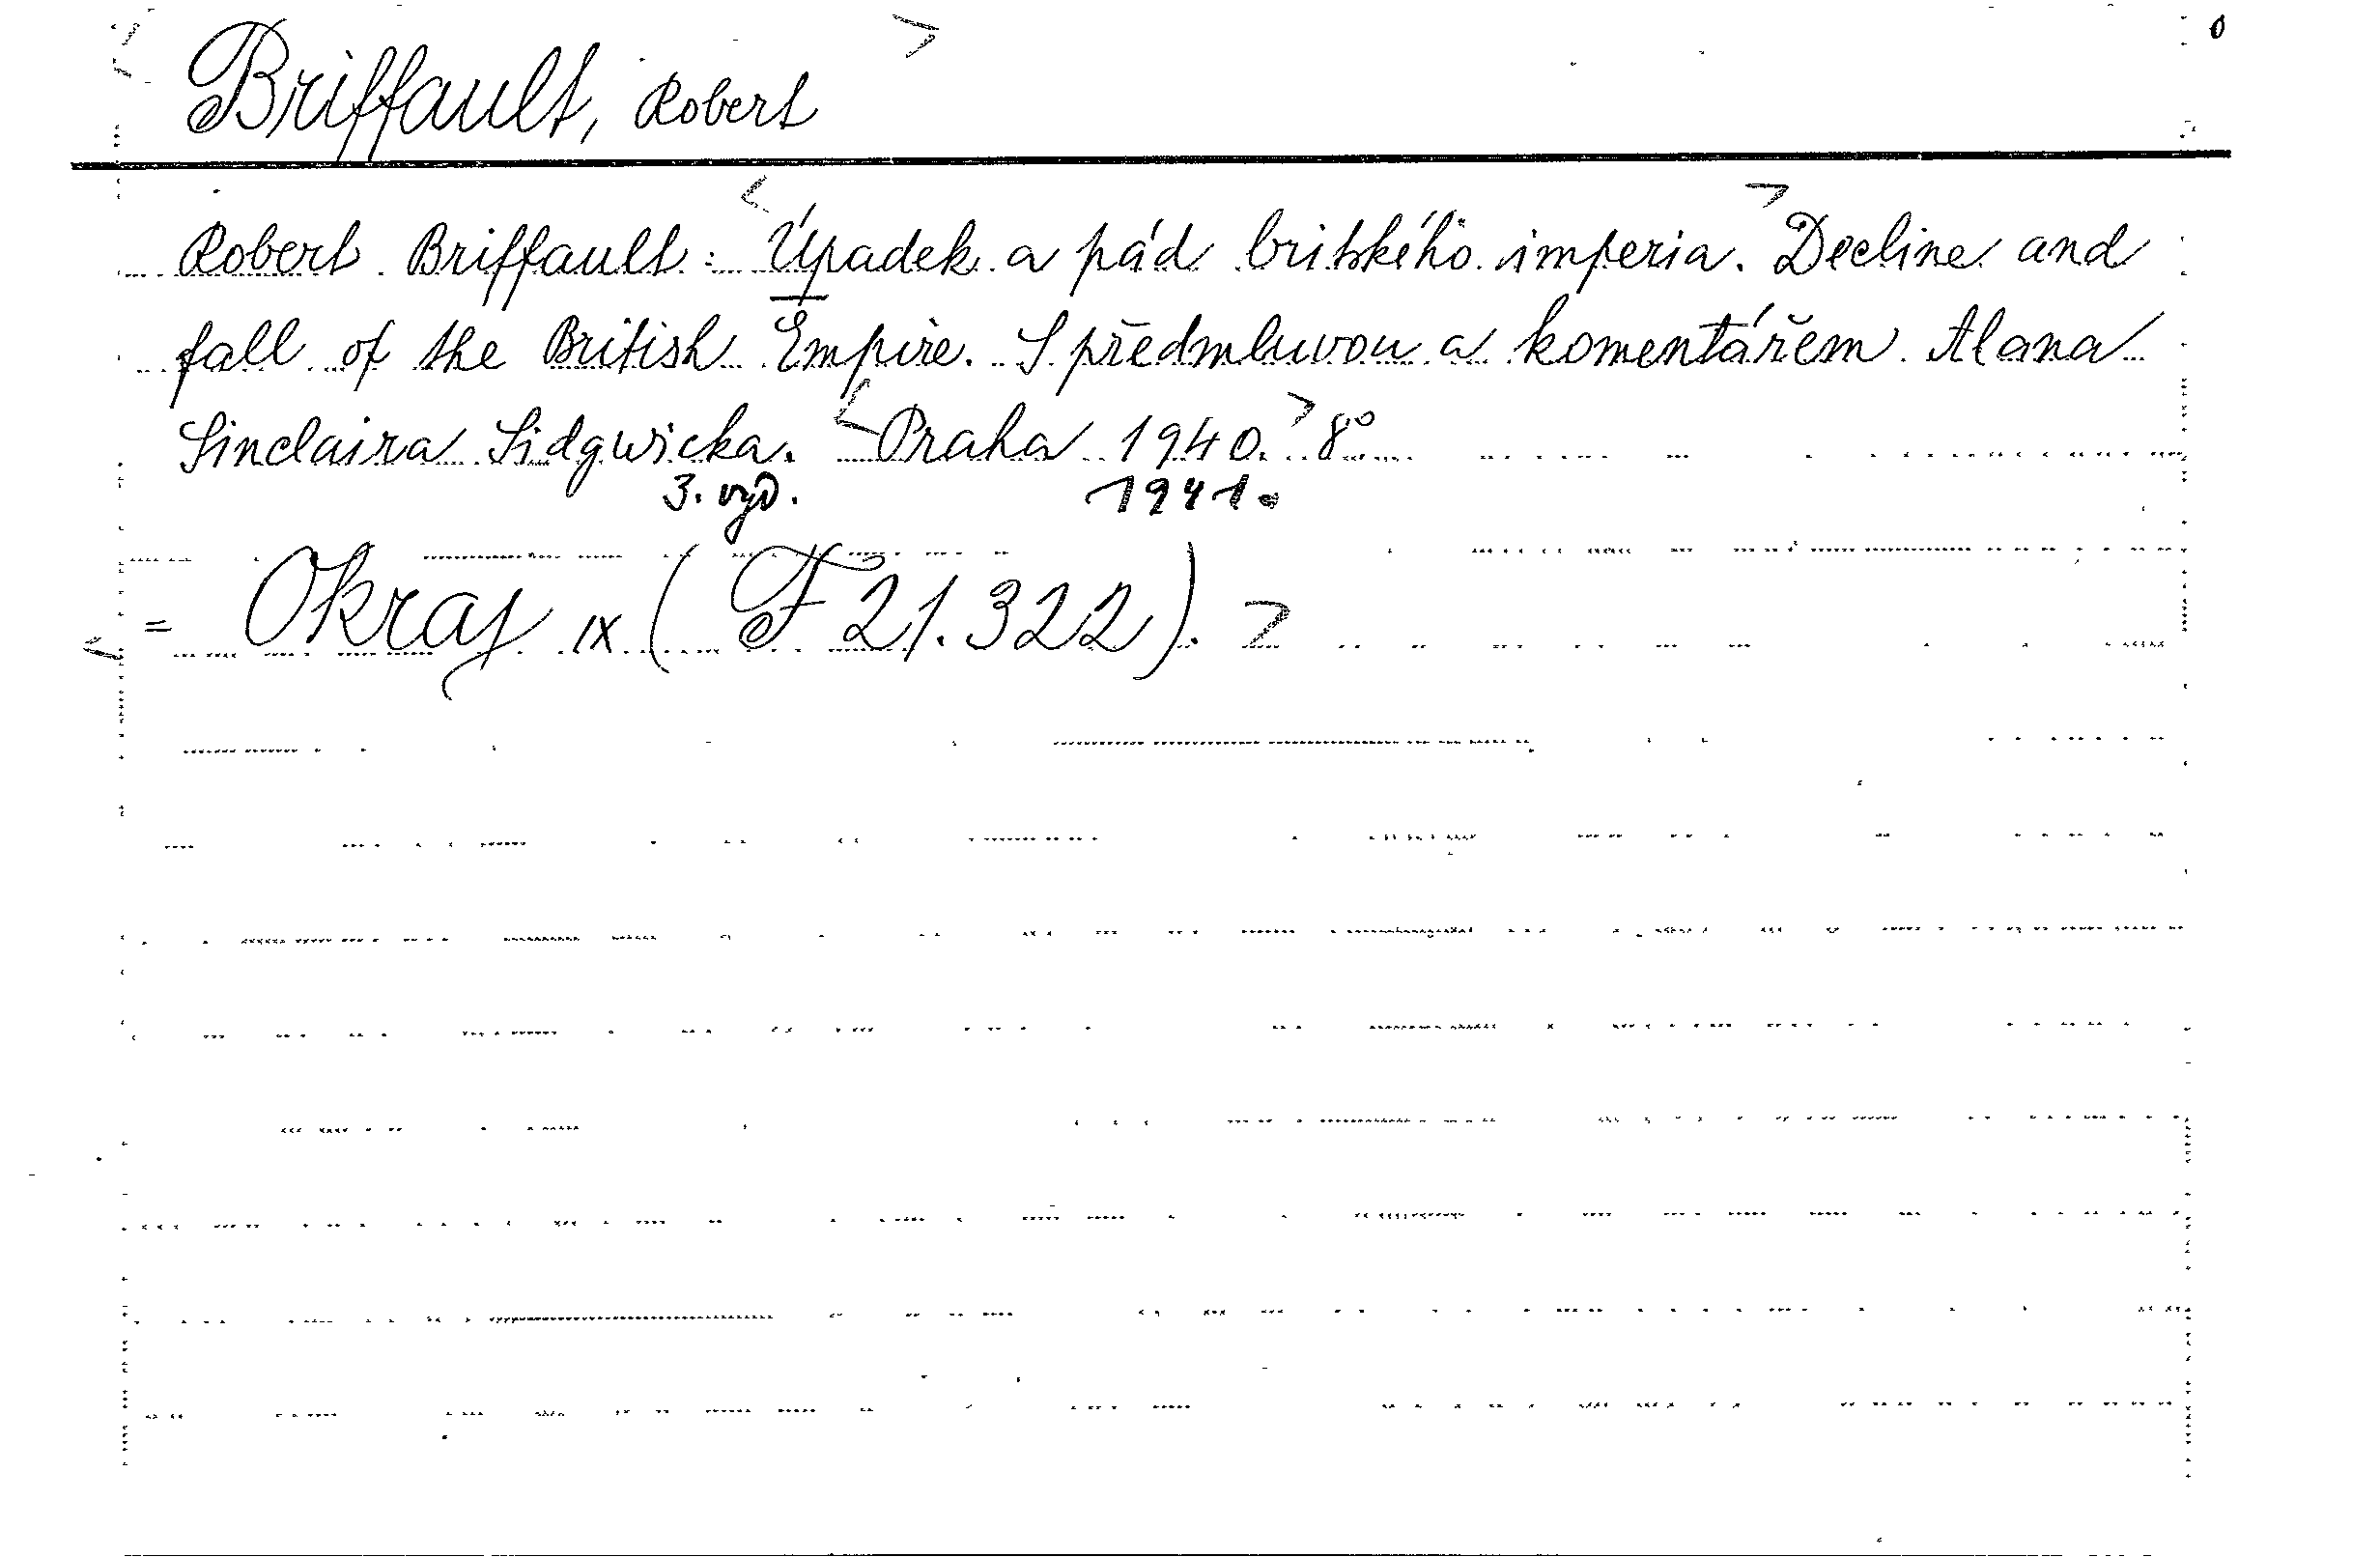 Briffault, Robert
Robert Briffault: Úpadek a pád britského imperia. Decline and
fall of the British Empire. S předmluvou a komentářem Alana
Sinclaira Sidgwicka. Praha 1940. 8°
3. vyd. 1941.
= Okraj IX ( F 21.322 ).